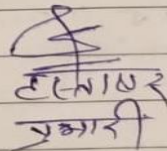 हस्ताक्षर
प्रभारी